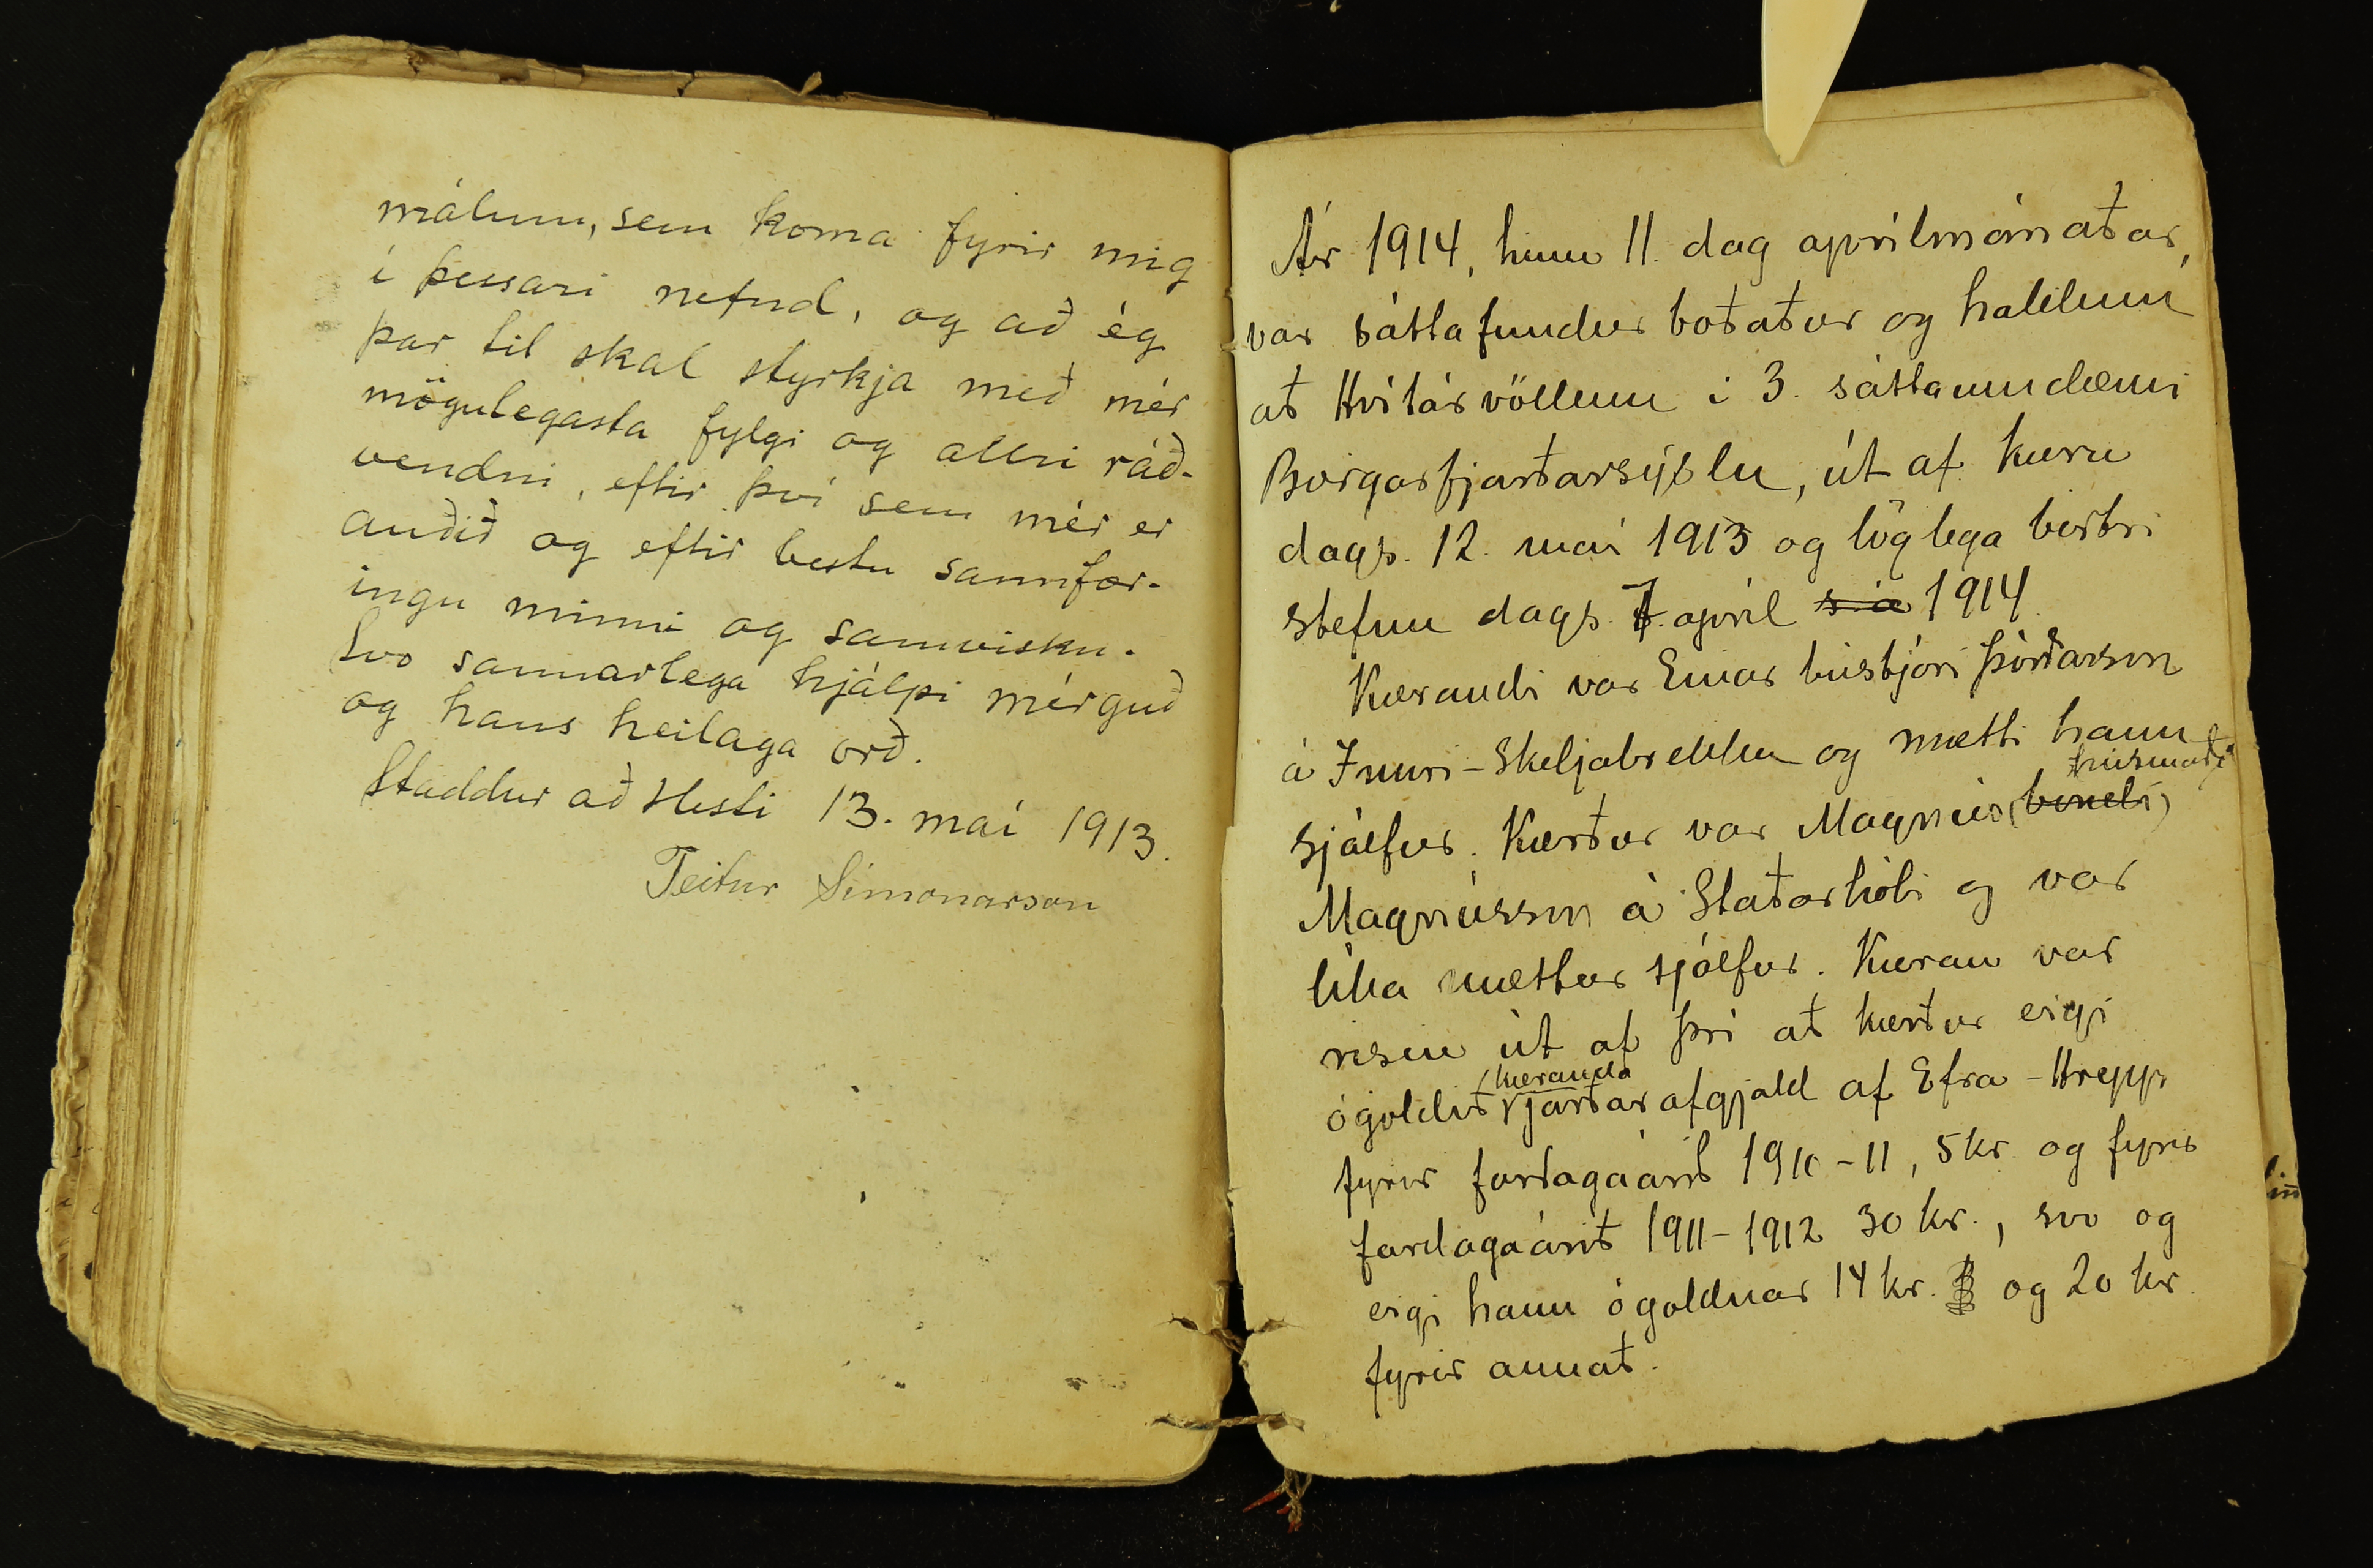 málum, sem koma fyrir mig
í þessari nefnd, og að ég
þar til skal styrkja með mér
mögulegasta fylgi og allri ráð-
vendni, eftir því sem mér er
auðið og eftir bestu sannfær-
ingu minni og samvisku.
Svo sannarlega hjálpi mér guð
og hans heilaga orð.
Staddur að Hesti 13. maí 1913.
Teitur Símonarson
Ár 1914, hinn 11. dag aprílmánaðar,
var sáttafundur boðaður og haldinn
að Hvítárvöllum í 3. sáttaumdæmi
Borgarfjarðarsýslu, út af kæru
dags. 12. maí 1913 og löglega birtri
stefnu dags. 7. apríl s. á 1914.
Kærandi var Einar bústjóri Þórðarson
á Innri-Skeljabrekku og mætti hann
sjálfur. Kærður var Magnús (bóndi) húsmaður
Magnússon á Staðarhóli og var
líka mættur sjálfur. Kæran var
risin út af því að kærður eigi
ógoldið kæranda jarðarafgjald af Efra-Hrepp
fyrir fardagaárið 1910-11, 5 kr. og fyrir
fardagaárið 1911-1912 30 kr., svo og
eigi hann ógoldnar 14 kr. og 20 kr.
fyrir annað.